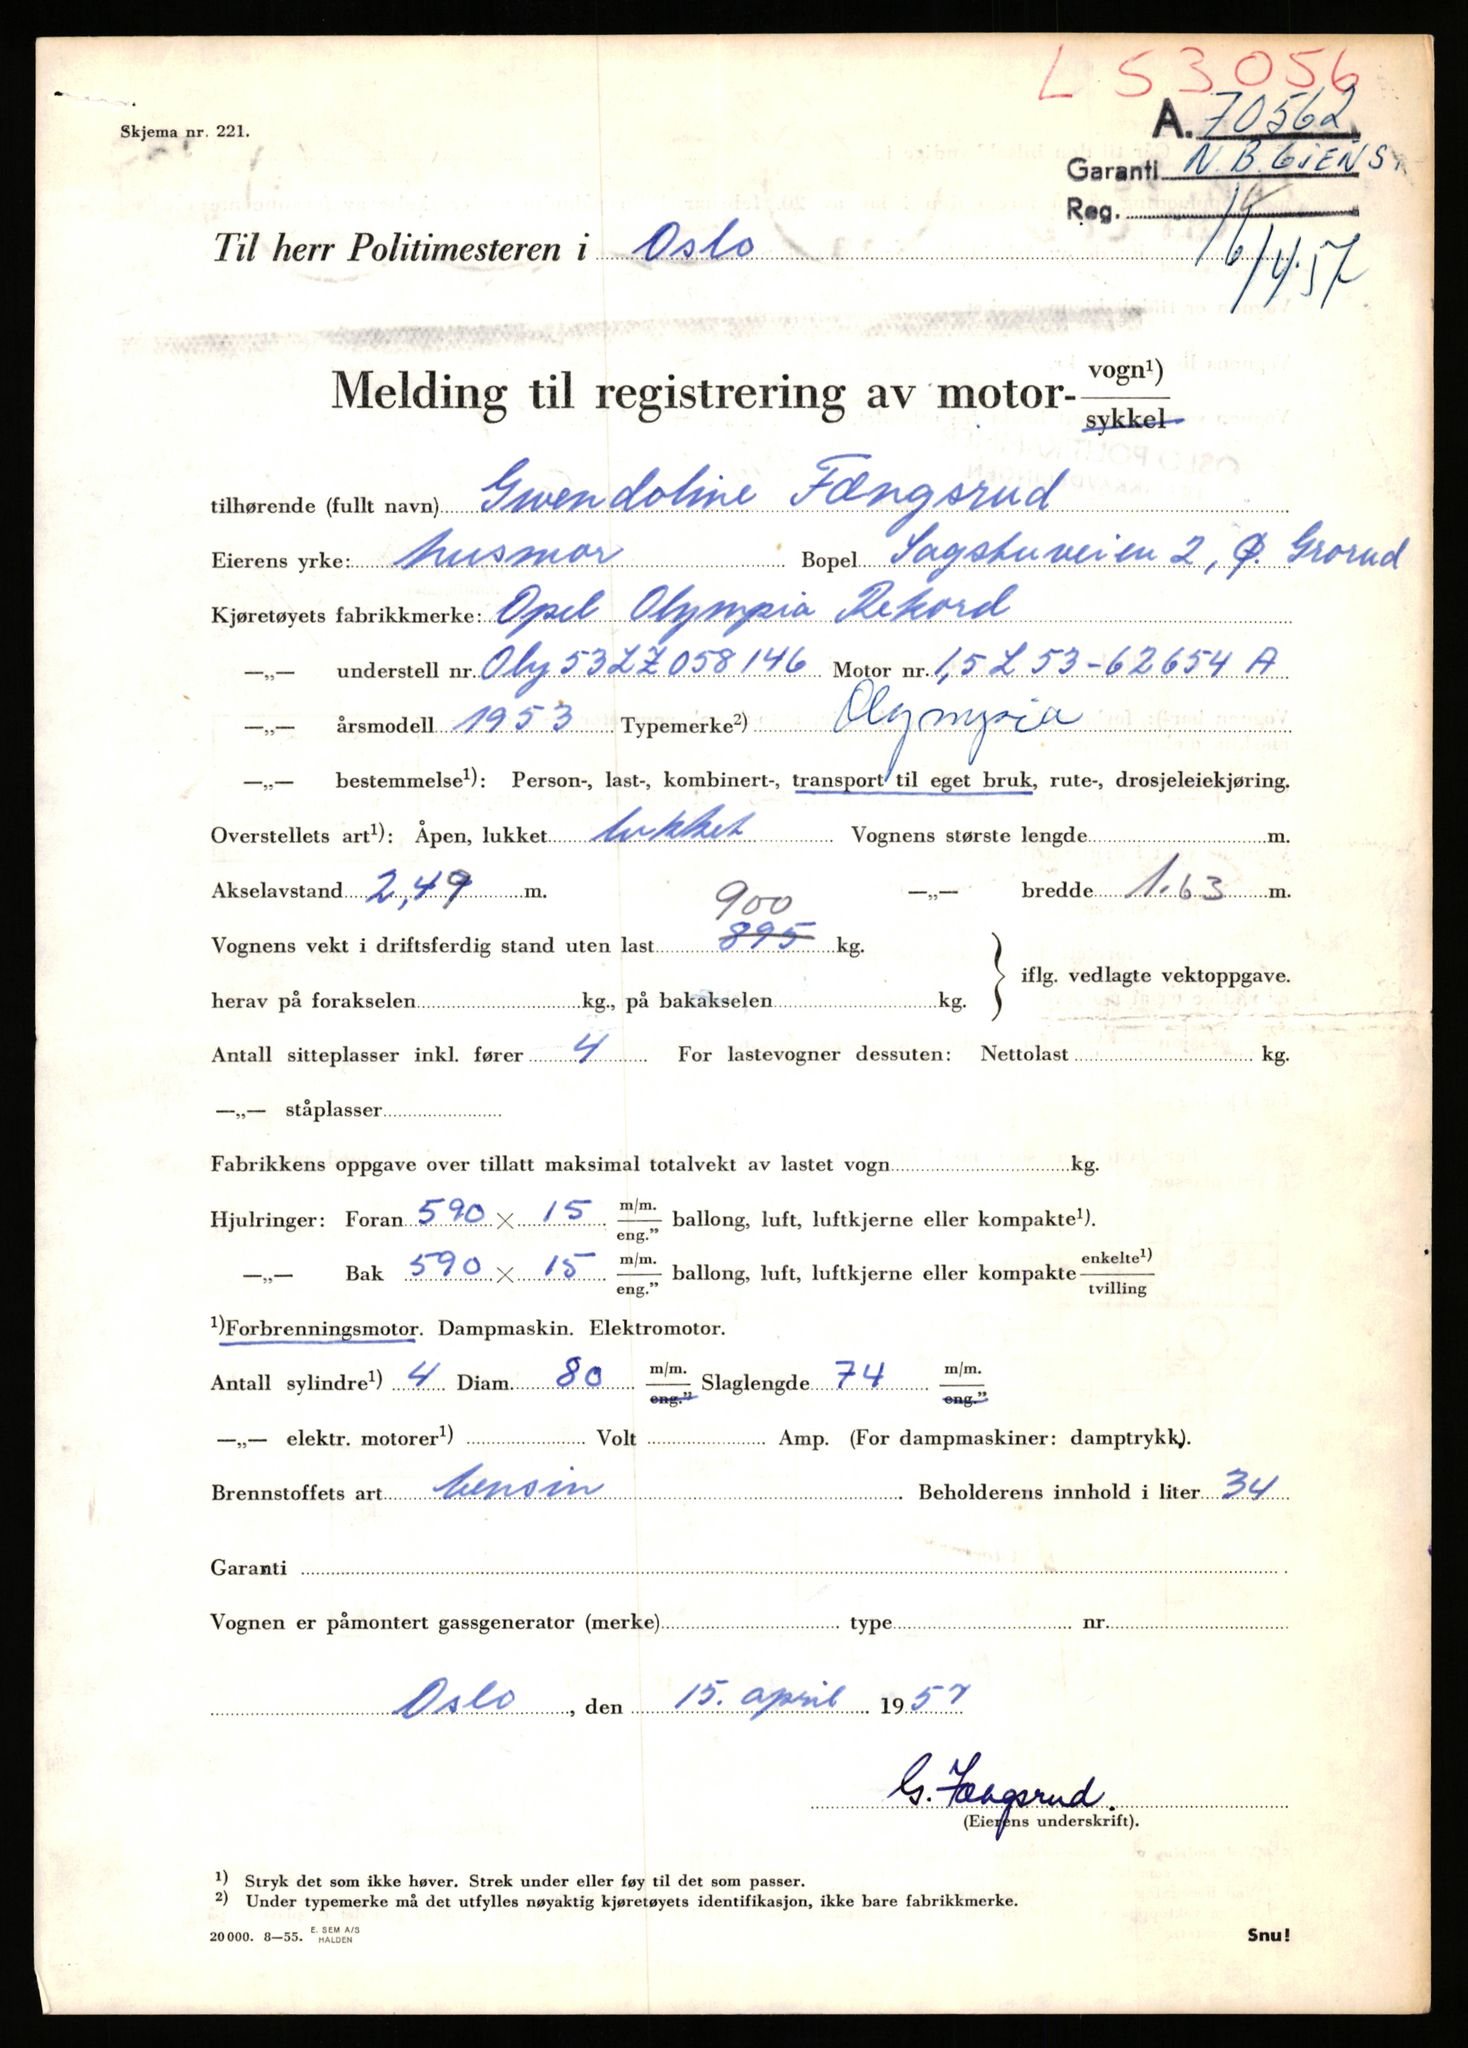 L 53056
Skjema nr. 221.
A. 70562
Garanti N.B. GiENS
Reg. 16/4.57
Til herr Politimesteren i Oslo
Melding til registrering av motor- vogn¹)
sykkel
tilhørende (fullt navn) Gwendoline Fængsrud
Eierens yrke: husmor Bopel Sagstuveien 2, Ø. Grorud
Kjøretøyets fabrikkmerke: Opel Olympia Rekord
—„— understell nr. Oly 53LZ 058146 Motor nr. 1,5 L 53-62654 A
—„— årsmodell 1953 Typemerke²) Olympia
—„— bestemmelse¹): Person-, last-, kombinert-, transport til eget bruk, rute-, drosjeleiekjøring.
Overstellets art¹): Åpen, lukket lukket Vognens største lengde m.
Akselavstand 2,49 m. —„— bredde 1.63 m.
900
Vognens vekt i driftsferdig stand uten last 895 kg.
iflg. vedlagte vektoppgave.
herav på forakselen kg., på bakakselen kg.
Antall sitteplasser inkl. fører 4 For lastevogner dessuten: Nettolast kg.
—„— ståplasser
Fabrikkens oppgave over tillatt maksimal totalvekt av lastet vogn kg.
Hjulringer: Foran 590 × 15 m/m. eng.” ballong, luft, luftkjerne eller kompakte¹).
—„— Bak 590 × 15 m/m. eng.” ballong, luft, luftkjerne eller kompakte enkelte¹) tvilling
¹)Forbrenningsmotor. Dampmaskin. Elektromotor.
Antall sylindre¹) 4 Diam. 80 m/m. eng.” Slaglengde 74 m/m. eng.”
—„— elektr. motorer¹) Volt Amp. (For dampmaskiner: damptrykk).
Brennstoffets art bensin Beholderens innhold i liter 34
Garanti
Vognen er påmontert gassgenerator (merke) type nr.
Oslo, den 15. april 1957
G. Fængsrud.
(Eierens underskrift).
¹) Stryk det som ikke høver. Strek under eller føy til det som passer.
²) Under typemerke må det utfylles nøyaktig kjøretøyets identifikasjon, ikke bare fabrikkmerke.
20000. 8—55. E. SEM A/S HALDEN
Snu!